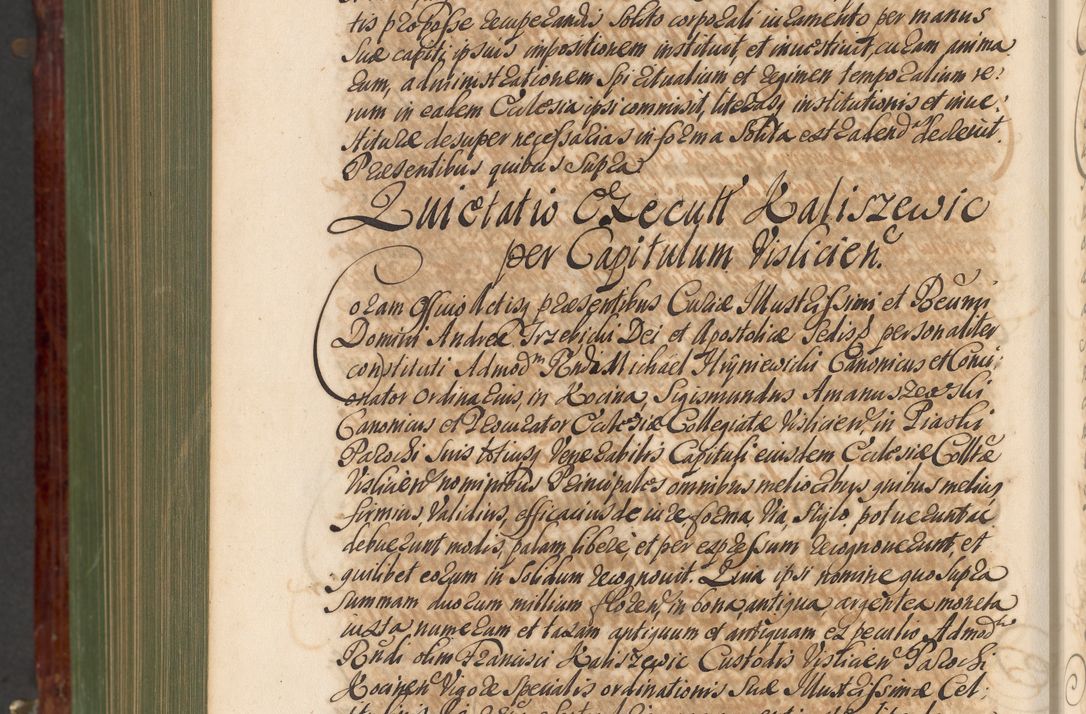 tis propõsse recuperandis solito corporali iuramento per manus
suæ capiti ipsius impositionem instituit, et inuestiuit, curam anima
rum, administrationem Spiritualium et regimen temporalium re:
rum in eadem Ecclesia ipsi commisit, literasq institutionis et inue:
stituræ desuper necessarias in forma solita extradendas decreuit.
Præsentibus quibus supra.
Quietatio Executt Kaliszewic
per Capitulum Vislicien.
Coram Officio Actisq præsentibus Curiæ Illustrissimi et Reverendissimi
Domini Andreæ Trzebicki Dei et Apostolicæ Sedis personaliter
constituti Admodm Rndi Michael Hryniewicki Canonicus et Conci:
onator ordinarius, in Kocina, Sigismundus Amanuszewski
Canonicus et Procurator Ecclesiæ Collegiatæ Vislicien in Piaski
Parochi suis totiusq Venerabilis Capituli eiusdem Ecclesiæ Colltæ
Vislicien nominibus Principales omnibus melioribus quibus melius
firmius Validius, efficacius de iure forma, Via, Stylo potuerunt ac
debuerunt modis, palam libere, et per expressum recognouerunt, et
quilibet eorum in solidum recognouit. Quia ipsi nomine quo supra
summam duorum millium floren, in bona, antiqua, argentea moneta
iusta, numerum et taxam antiquum et antiquam ex peculio Admodm
Rndi olim Francisci Kaliszewic Custodis Vislicien Parochi
Kocinen Vigore specialis ordinationis suæ Illustrissimæ Cel: